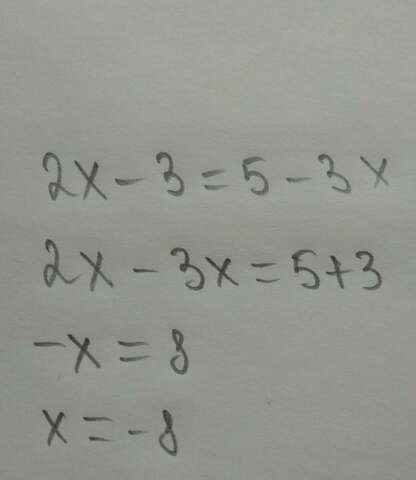 2x - 3 = 5 - 3x
2x - 3x = 5+3
-x = 8
x = -8